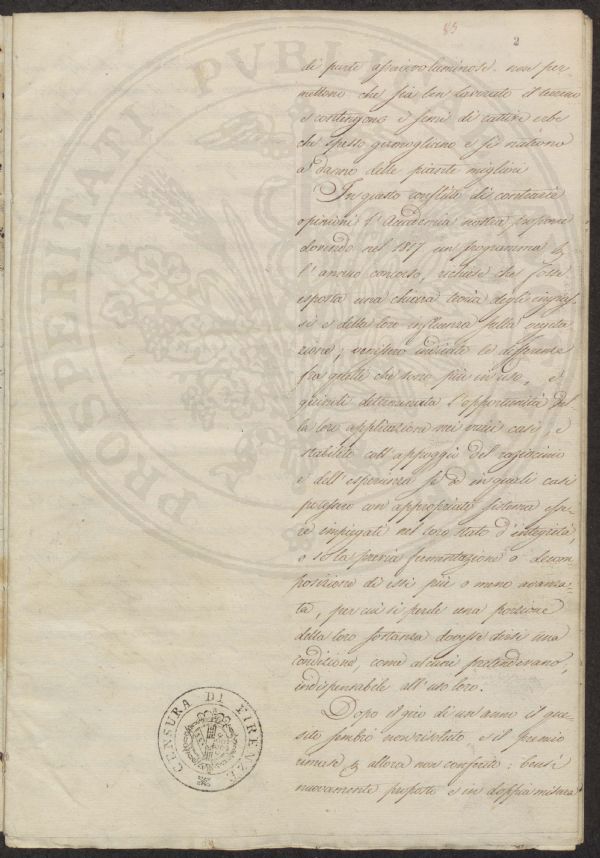 85
2
di parte assai voluminose non per-
mettono che sia ben lavorato il terreno
e contengono i semi di cattive erbe
che spesso germogliano e si nutrono
a danno delle piante migliori
In questo conflitto di contrarie
opinioni l'Accademia nostra propo
donendo nel 1817 un programma
l'annuo concorso, richiese che fosse
esposta una chiara teoria degli ingras-
si e della loro influenza sulla vegeta
zione; venissero indicate le differenze
fra quelle che sono più in uso, e
quindi determinata l'opportunità del
la loro applicazione nei varii casi, e
stabilito coll'appoggio del raziocinio
e dell'esperienza se e in quali casi
potessero con appropriato sistema esse
re impiegati nel loro stato d'integrità,
o se la previa fermentazione o decom
posizione di essi più o meno avanza-
ta, per cui si perde una porzione
della loro sostanza dovesse dirsi una
condizione, come alcuni pretendevano,
indispensabile all'uso loro.
Dopo il giro di un anno il que-
sito sembrò non risoluto e il premio
rimase allora non conferito: bensì
nuovamente proposto e in doppia misura
CENSURA DI FIRENZE
PROSPERITATI PVBLICAE